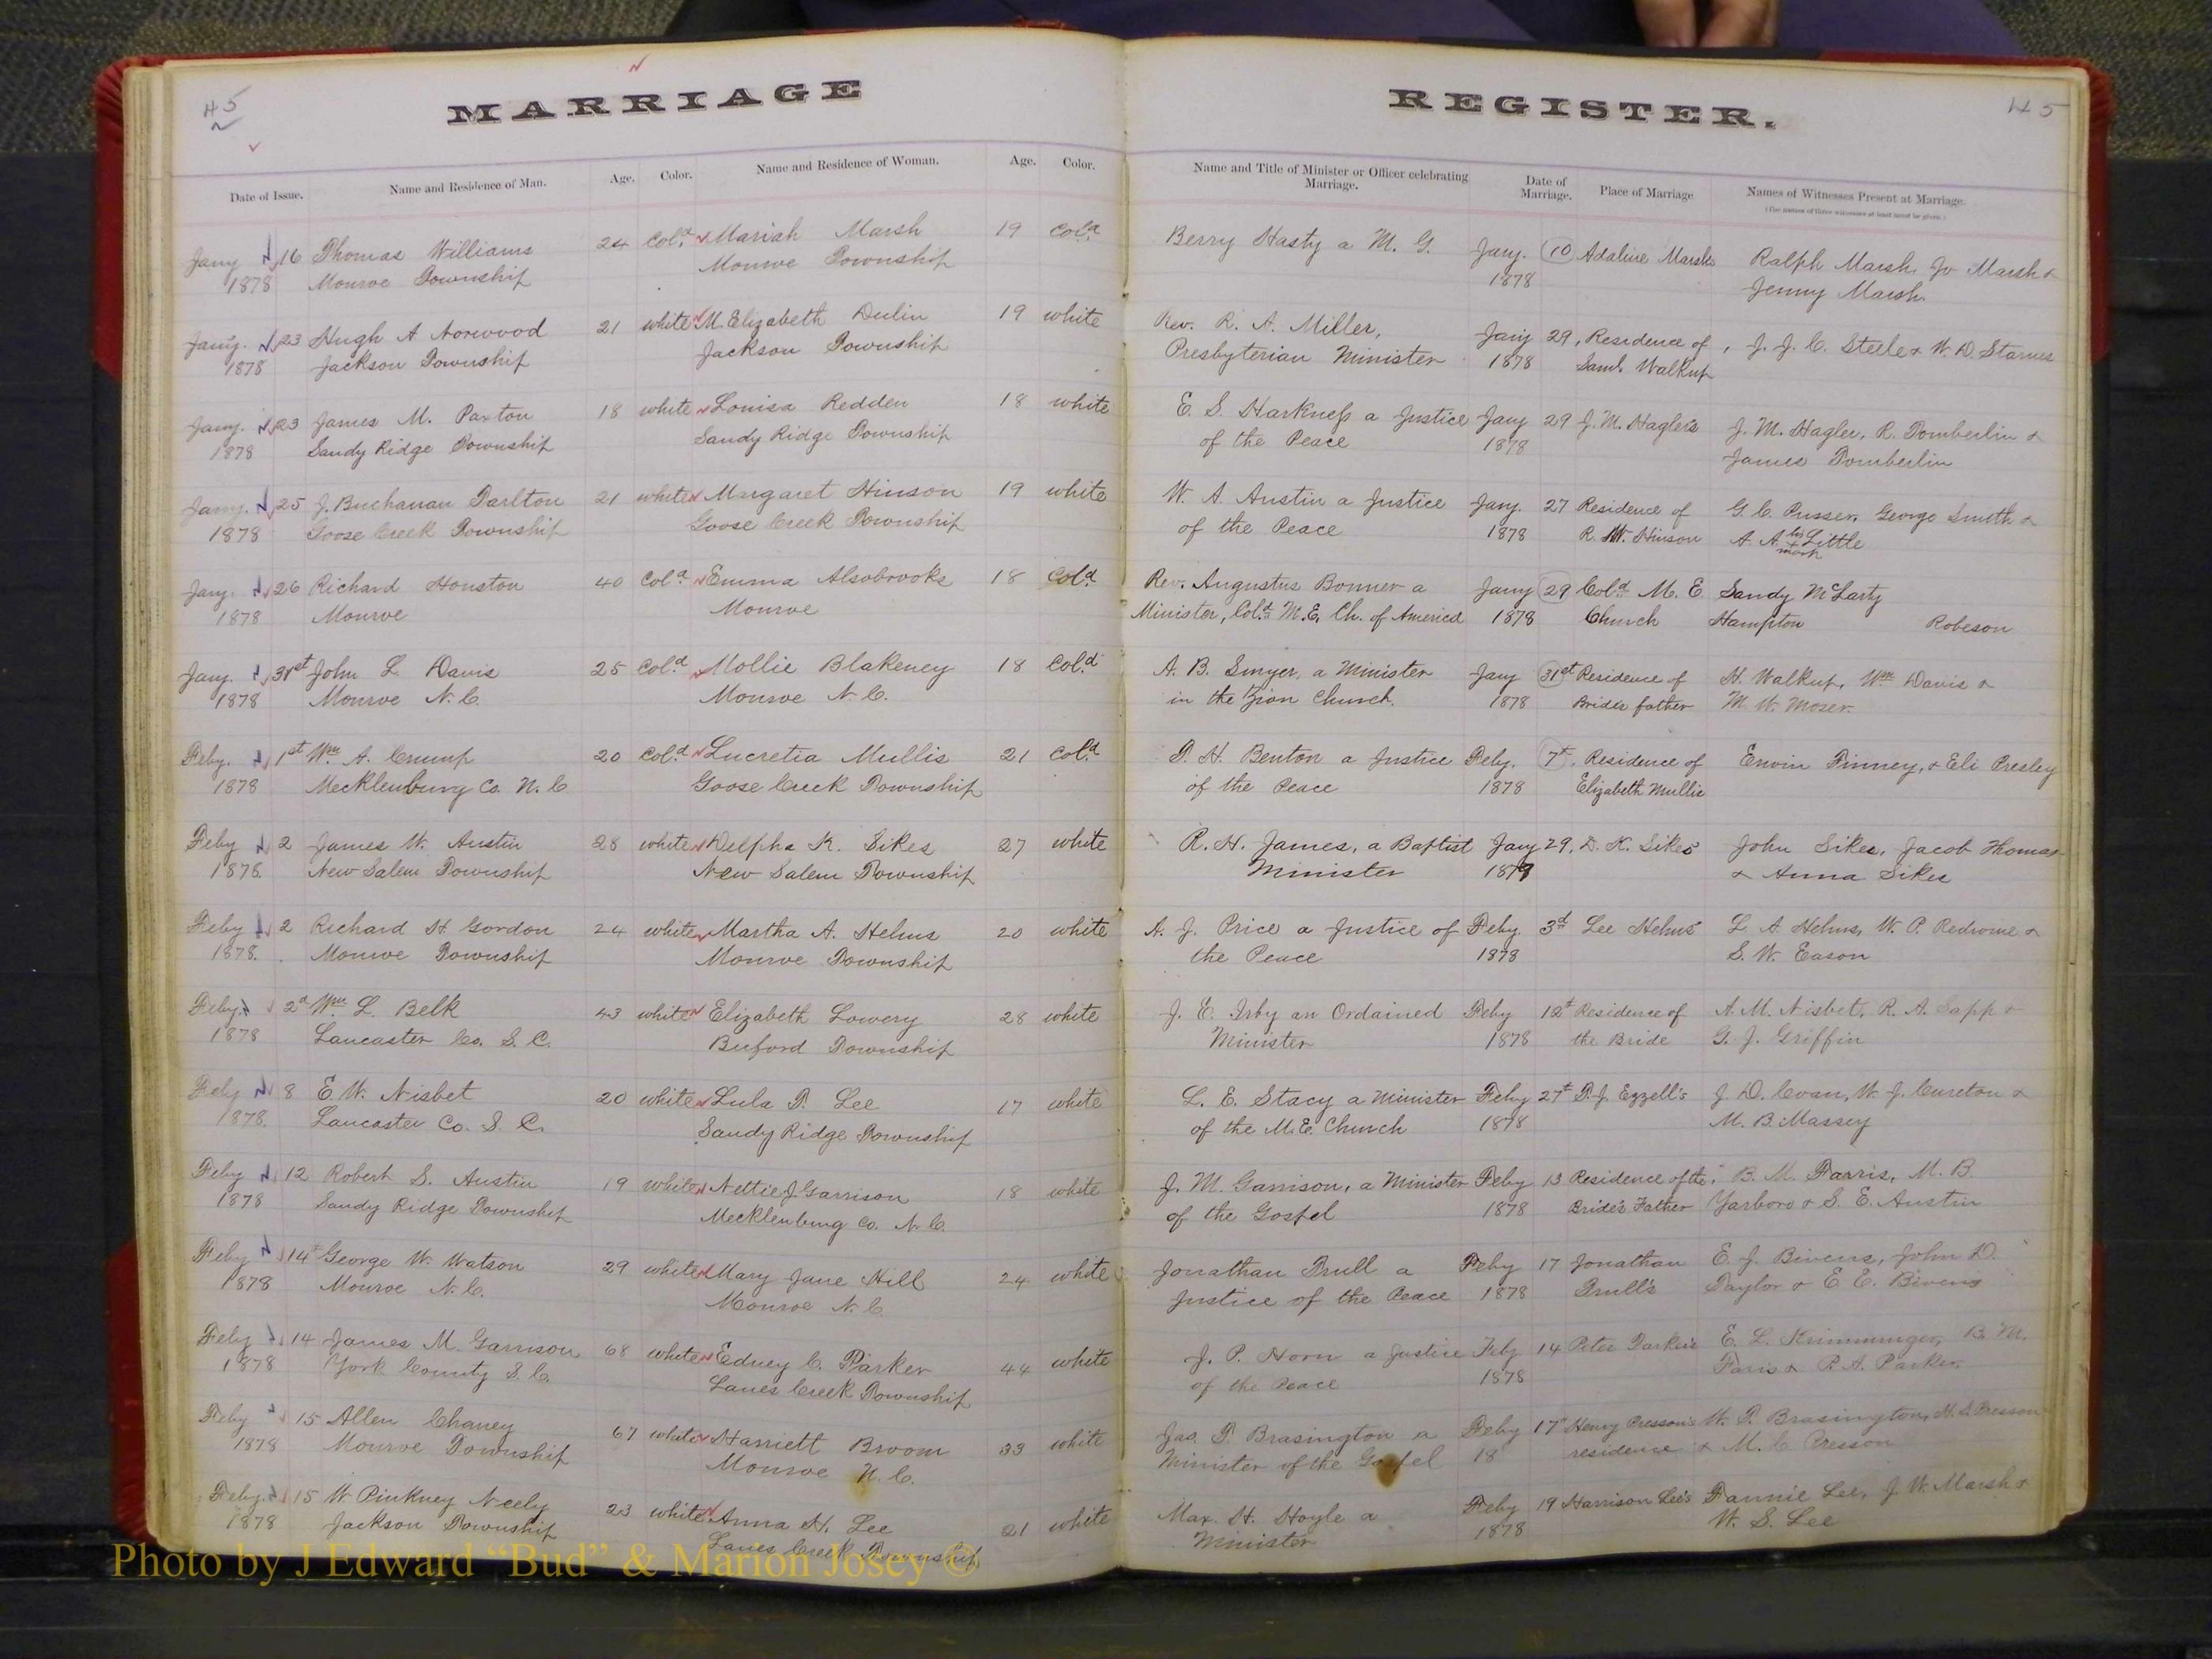 45
MARRIAGE
Date of Issue. Name and Residence of Man. Age. Color. Name and Residence of Woman. Age. Color.
Jany 16 Thomas Williams 24 Col.d Mariah Marsh 19 Col.d
1878 Monroe Township Monroe Township
Jany. 23 Hugh A Norwood 21 white M. Elizabeth Dulin 19 white
1878 Jackson Township Jackson Township
Jany. 23 James M. Paxton 18 white Louisa Redden 18 white
1878 Sandy Ridge Township Sandy Ridge Township
Jany. 25 J. Buchanan Tarlton 21 white Margaret Hinson 19 white
1878 Goose Creek Township Goose Creek Township
Jany. 26 Richard Houston 40 Col.d Emma Alsobrooks 18 Col.d
1878 Monroe Monroe
Jany. 31st John L. Davis 25 Col.d Mollie Blakeney 18 Col.d
1878 Monroe N.C. Monroe N.C.
Feby. 1st Wm. A. Crump 20 Col.d Lucretia Mullis 21 Col.d
1878 Mecklenburg Co. N.C Goose Creek Township
Feby 2 James W. Austin 28 white Delpha K. Sikes 27 white
1878. New Salem Township New Salem Township
Feby 2 Richard H. Gordon 24 white Martha A. Helms 20 white
1878. Monroe Township Monroe Township
Feby. 2d Wm L. Belk 43 white Elizabeth Lowery 28 white
1878 Lancaster Co. S.C. Buford Township
Feby 8 E.W. Nisbet 20 white Lula T. Lee 17 white
1878. Lancaster Co. S.C. Sandy Ridge Township
Feby 12 Robert S. Austin 19 white Nettie J Garrison 18 white
1878 Sandy Ridge Township Mecklenburg Co. N.C.
Feby 14t George W. Watson 29 white Mary Jane Hill 24 white
1878 Monroe N.C. Monroe N.C.
Feby 14 James M. Garrison 68 white Edney C. Parker 44 white
1878 York County S.C. Lanes Creek Township
Feby 15 Allen Chaney 67 white Harriett Broom 33 white
1878 Monroe Township Monroe N.C.
Feby. 15 W Pinkney Neely 23 white Anna H. Lee 21 white
1878 Jackson Township Lanes Creek Township
45
REGISTER.
Name and Title of Minister or Officer celebrating Marriage. Date of Marriage. Place of Marriage Names of Witnesses Present at Marriage.
(The names of three witnesses at least must be given.)
Berry Hasty a M. G. Jany. 10 Adaline Marsh Ralph Marsh, Jo Marsh &
1878 Jenny Marsh
Rev. R. A. Miller, Jany 29, Residence of J. J. C. Steele & W. D. Starnes
Presbyterian Minister 1878 Saml. Walkup
E. S. Harkness a Justice Jany 29 J. M. Hagler's J. M. Hagler, R. Tomberlin &
of the Peace 1878 James Tomberlin
W. A. Austin a Justice Jany. 27 Residence of G. C. Presser, George Smith &
of the Peace 1878 R. W. Hinson A. A. his x mark Little
Rev. Augustus Bonner a Jany 29 Col.d M. E. Sandy McLarty
Minister, Col.d M.E. Ch. of America 1878 Church Hampton Robeson
A. B. Smyer, a Minister Jany 31st Residence of H. Walkup, Wm Davis &
in the Zion Church. 1878 Brides father M. W. Moser.
T. H. Benton a Justice Feby. 7t, Residence of Ervin Pinney, & Eli Presley
of the Peace 1878 Elizabeth Mullis
R. H. James, a Baptist Jany 29, D. K. Sikes John Sikes, Jacob Thomas
Minister 1879 & Anna Sikes
A. J. Price a Justice of Feby. 3d Lee Helms' L A Helms, W. P. Redwine &
the Peace 1878 S. W. Eason
J. E. Irby an Ordained Feby 12t Residence of A. M. Nisbet, R. A. Sapp &
Minister 1878 the Bride G. J. Griffin
L. E. Stacy a Minister Feby 27t T. J. Ezzell's J. D. Covan, W. J. Cureton &
of the M.E. Church 1878 M. B. Massey
J. M. Garrison, a Minister Feby 13 Residence of the B. M. Farris, M. B.
of the Gospel 1878 Bride's Father Yarboro & S. E. Austin
Jonathan Trull a Feby 17 Jonathan E. J. Bivens, John D.
Justice of the Peace 1878 Trull's Taylor & E. E. Bivens
J. P. Horn a Justice Feby 14 Peter Parker's E. L. Krimminger, B. M.
of the Peace 1878 Faris & P. A. Parker.
Jas. T. Brasington a Feby 17" Henry Presson's W. T. Brasington, H. S. Presson
Minister of the Gospel 18 residence & M. C. Presson
Max. H. Hoyle a Feby 19 Harrison Lee's Fannie Lee, J. W. Marsh &
Minister 1878 W. S. Lee
Photo by J Edward “Bud” & Marion Josey ©